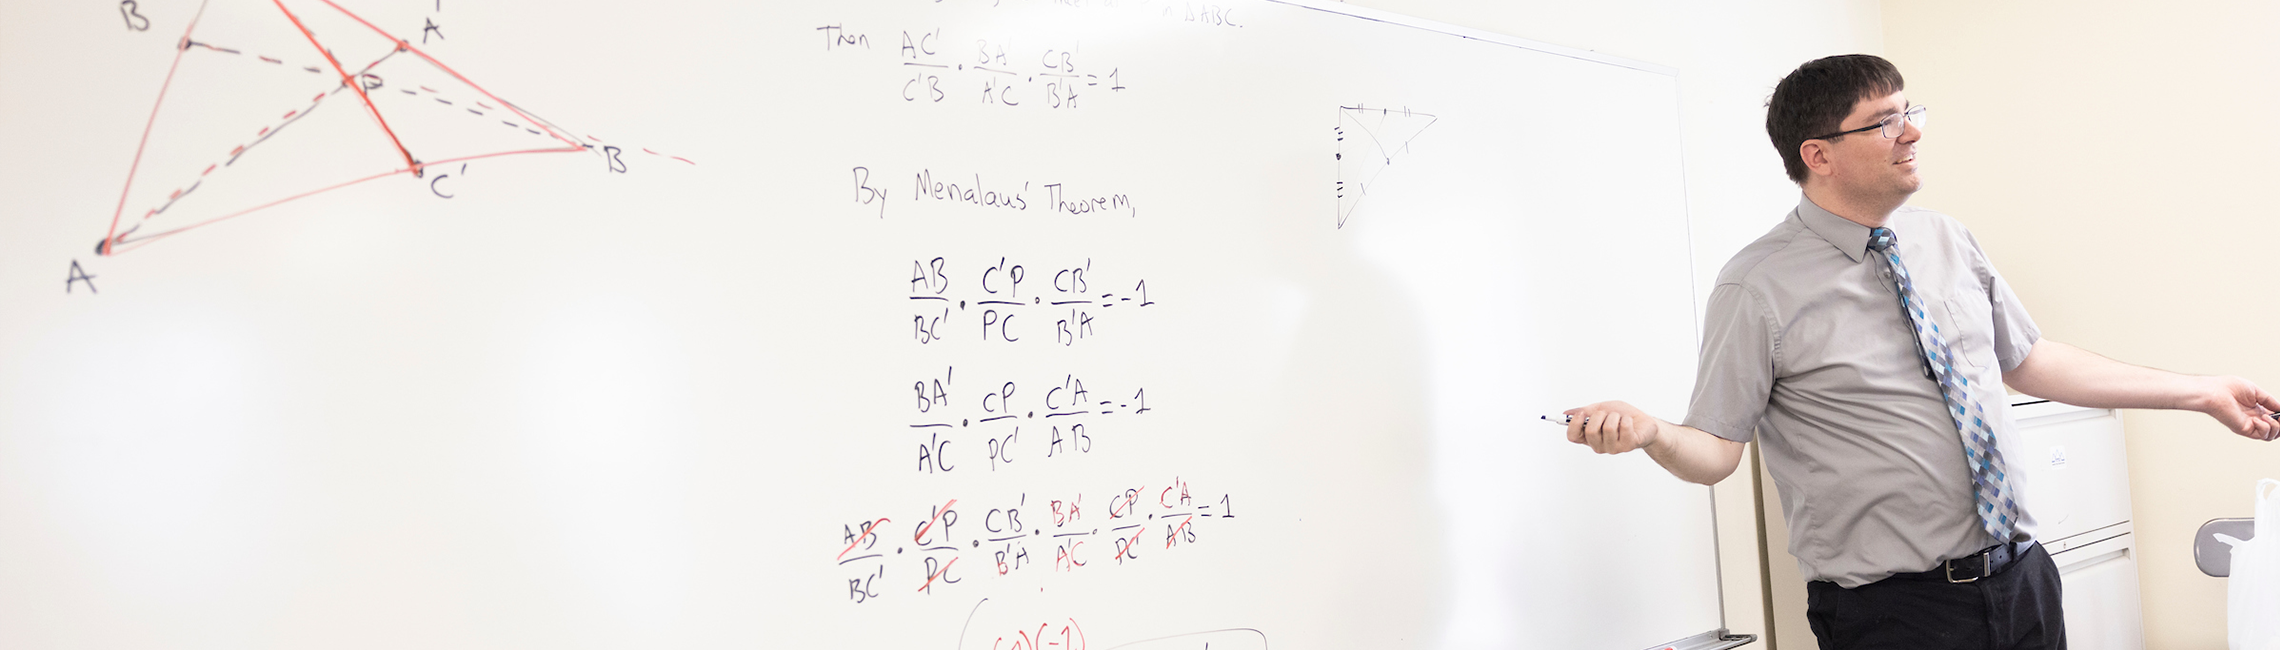 B
A'
P
C'
B
A
n ΔABC.
Then AC'/C'B · BA'/A'C · CB'/B'A = 1
By Menalaus' Theorem,
AB/BC' · C'P/PC · CB'/B'A = -1
BA'/A'C · CP/PC' · C'A/AB = -1
AB/BC' · C'P/PC · CB'/B'A · BA'/A'C · CP/PC' · C'A/AB = 1
(-1)(-1)